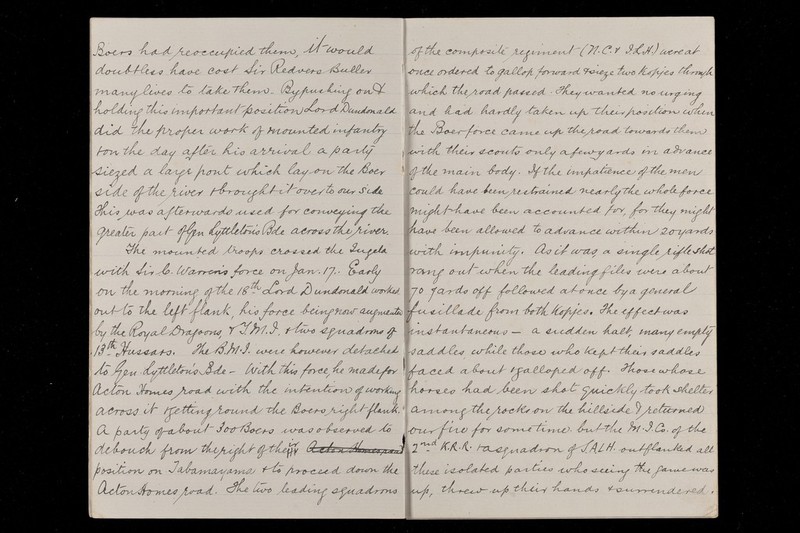 Boers had, reoccupied them, it would
doubtless have cost Sir Redvers Buller
many lives to take them. By pushing on &
holding this important position Lord Dundonald
did the proper work of mounted infantry
& on the day after his arrival a party
siezed a large pont which lay on the Boer
side of the river & brought it over to our side
This was afterwards used for conveying the
greater part of Gen Lyttleton's Bde across the river.
The mounted troops crossed the Tugela
with Sir C. Warren's force on Jan. 17. Early
on the morning of the 18th Lord Dundonald worked
out to the left flank, his force being now augmented
by the Royal Dragoons, & M.I. & two squadrons of
13th Hussars. The B.M.I. were however detached
to Gen Lyttleton's Bde - With this force, he made for
Acton Homes road with the intention of working
across it & getting round the Boers right flank.
A party of about 300 Boers was observed to
debouch from the right of their Acton Homes road
position on Tabamayama & to proceed down the
Acton Homes road. The two leading squadrons
of the composite regiment (N.C. & I.L.H.) were at
once ordered to gallop forward & sieze two Kopjes through
which the road passed. They wanted no urging
and had hardly taken up their position when
the Boer force came up the road towards them
with their scouts only a few yards in advance
of the main body. If the impatience of the men
could have been restrained nearly the whole force
might have been accounted for, for they might
have been allowed to advance within 20 yards
with impunity. As it was a single rifle shot
rang out when the leading files were about
70 yards off followed at once by a general
fusillade from both Kopjes. The effect was
instantaneous — a sudden halt, many empty
saddles while those who kept their saddles
faced about & galloped off. Those whose
horses had been shot quickly took shelter
among the rocks on the hillside & returned
our fire for some time but the M.I. Co. of the
2nd K.R.R. & a squadron of S.A.L.H. outflanked all
these isolated parties who seeing the game was
up, threw up their hands & surrendered.